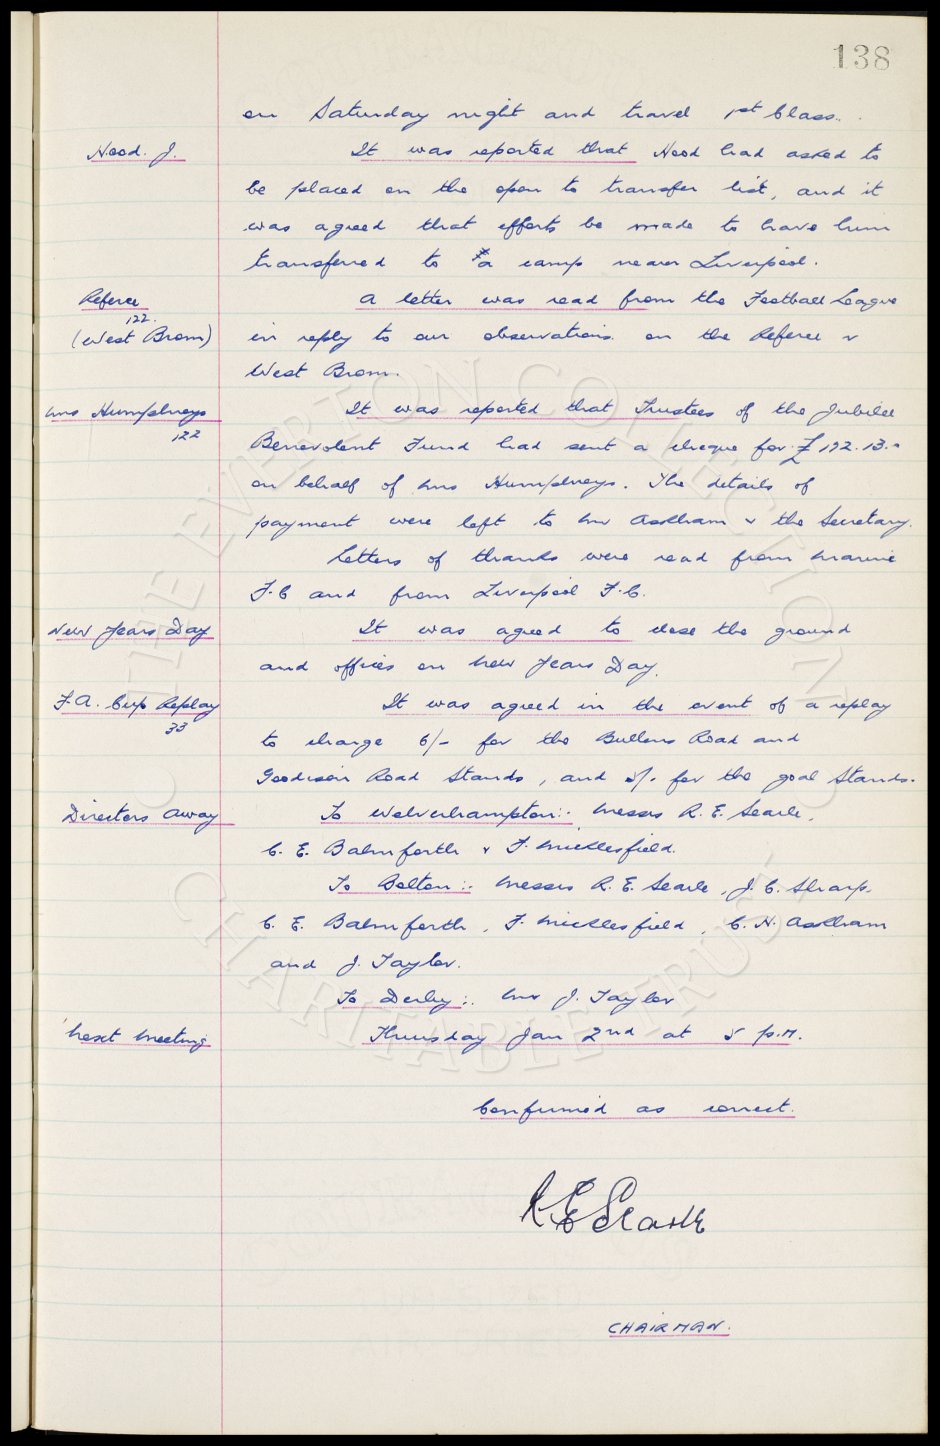 138
on Saturday night and travel 1st Class.
Hood. J.
It was reported that Hood had asked to
be placed on the open to transfer list, and it
was agreed that efforts be made to have him
transferred to a camp nearer Liverpool.
Referee
122.
(West Brom)
A letter was read from the Football League
in reply to our observations on the Referee v
West Brom.
Mrs Humphreys
122
It was reported that Trustees of the Jubilee
Benevolent Fund had sent a cheque for £192.13.-
on behalf of Mrs Humphreys. The details of
payment were left to Mr Askham & the Secretary.
Letters of thanks were read from Marine
F.C and from Liverpool F.C.
New Years Day
It was agreed to close the ground
and offices on New Years Day.
F.A. Cup Replay
33
It was agreed in the event of a replay
to charge 6/- for the Bullens Road and
Goodison Road Stands, and 5/- for the goal Stands.
Directors away
To Wolverhampton:- Messrs R. E. Searle,
C. E. Balmforth & F. Micklesfield.
To Bolton:- Messrs R. E. Searle, J. C. Sharp,
C. E. Balmforth, F. Micklesfield, C. H. Askham
and J. Taylor.
To Derby:- Mr J. Taylor
Next Meeting
Thursday Jan 2nd at 5 p.m.
Confirmed as correct.
R E Searle
CHAIRMAN.
© THE EVERTON COLLECTION
CHARITABLE TRUST